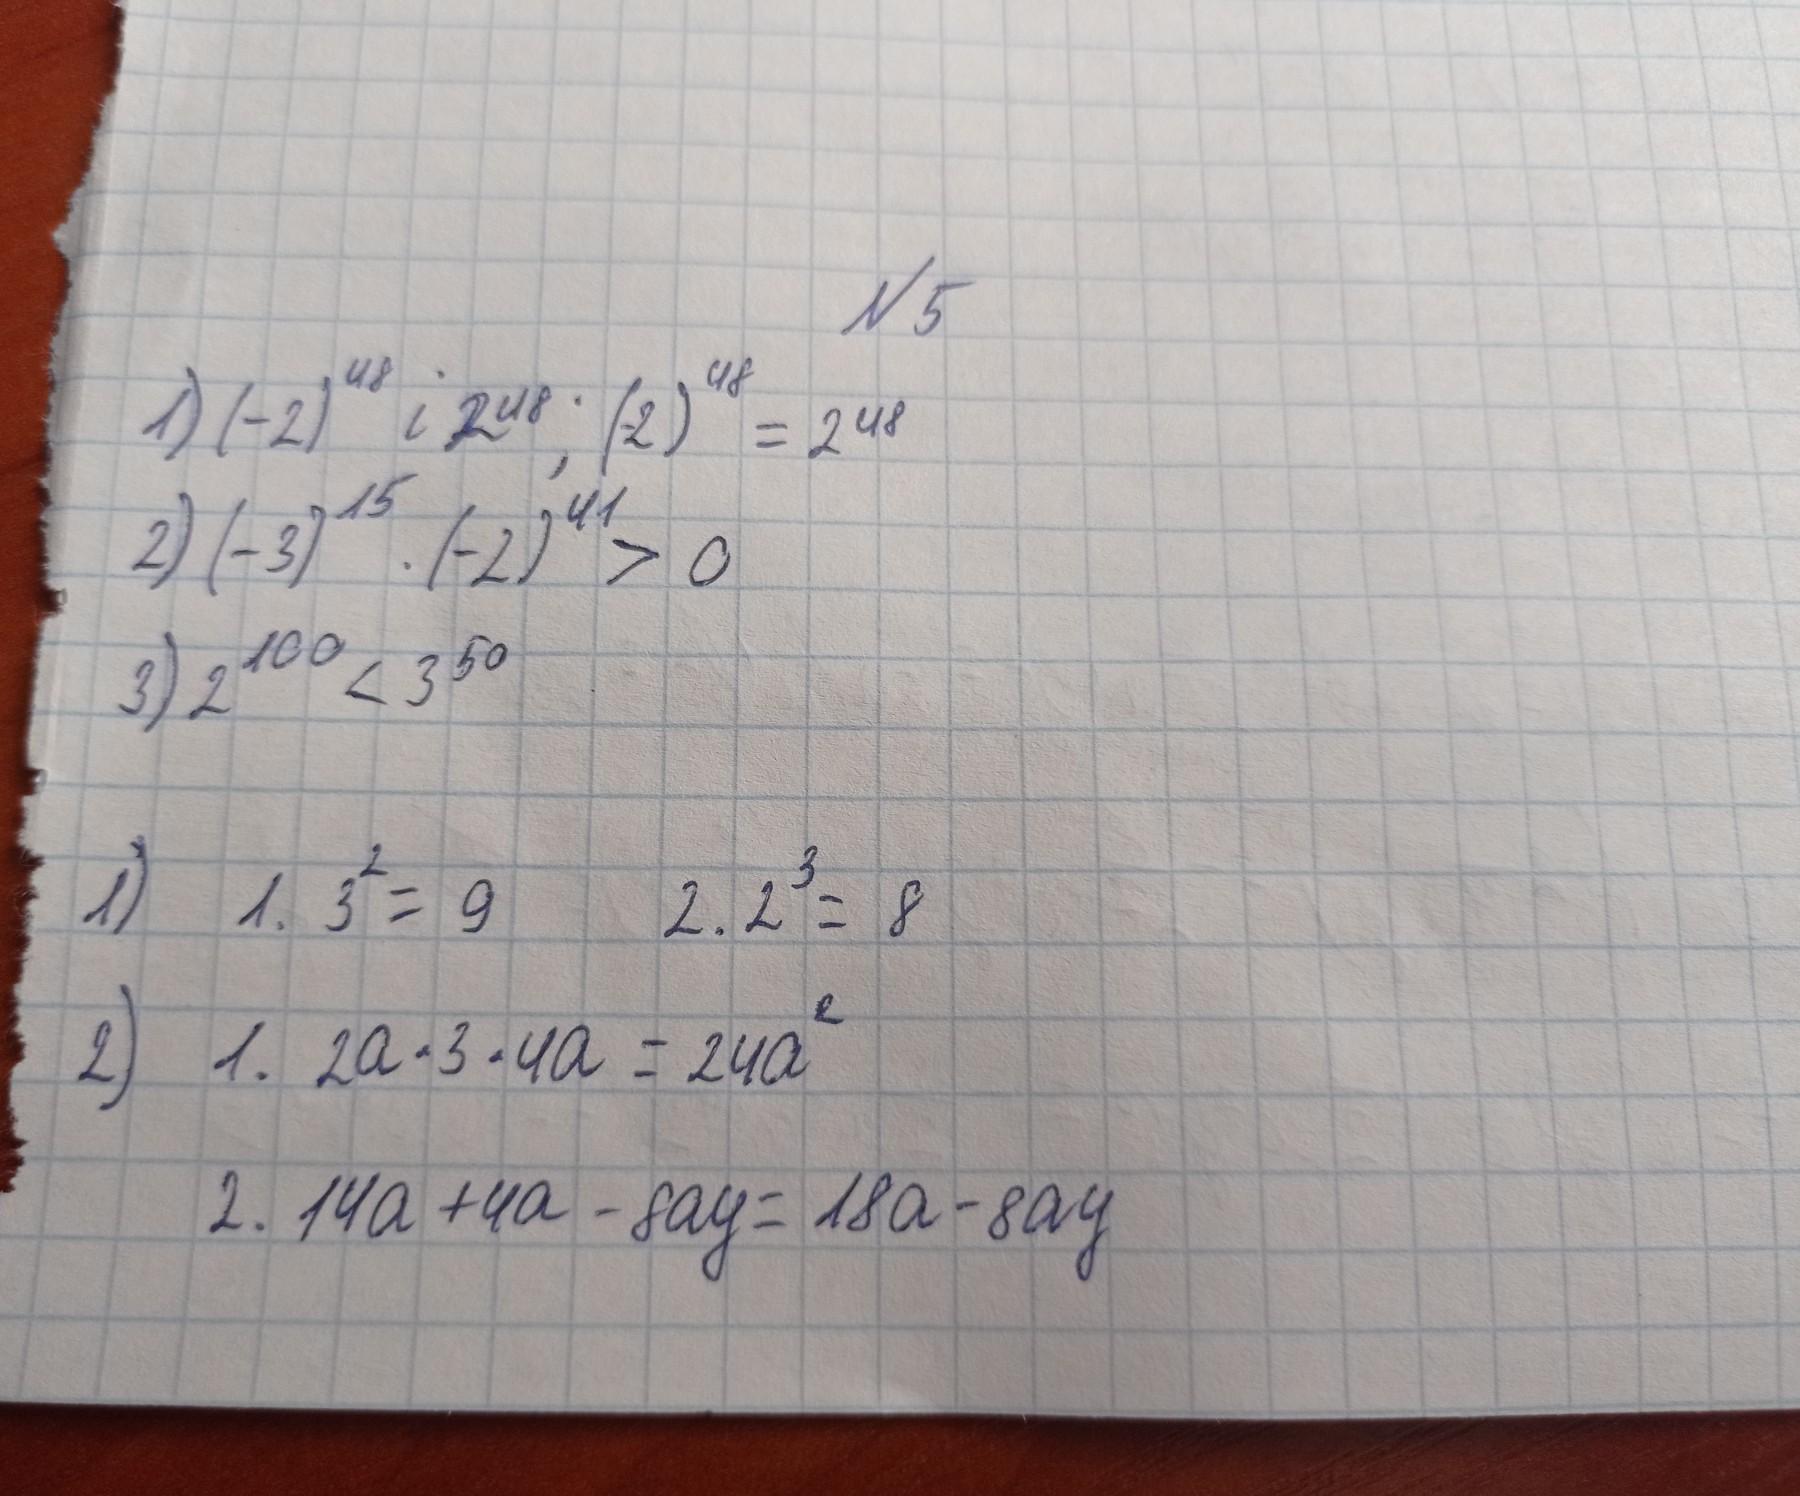 №5
1) (-2)^48 і 2^48; (-2)^48 = 2^48
2) (-3)^15 · (-2)^41 > 0
3) 2^100 < 3^50
1) 1. 3^2 = 9 2. 2^3 = 8
2) 1. 2a·3·4a = 24a^2
2. 14a + 4a - 8ay = 18a - 8ay